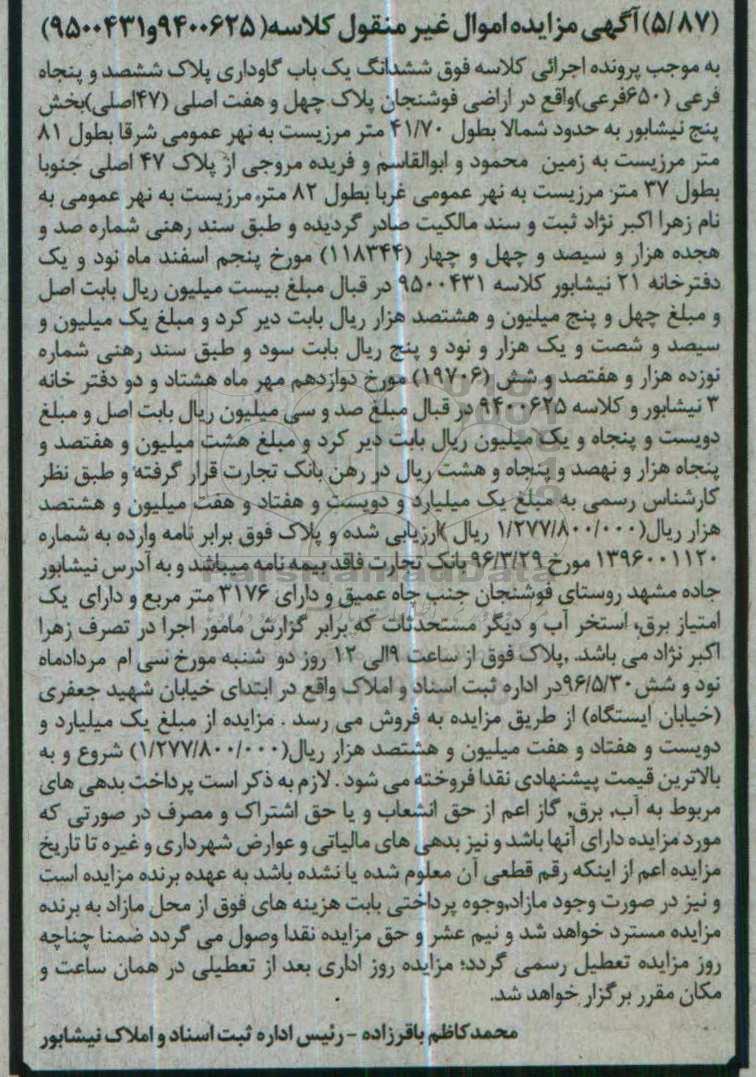 (۵/۸۷)آگهی مزایده اموال غیر منقول کلاسه( ۹۴۰۰۶۲۵و۹۵۰۰۴۳۱)
به موجب پرونده اجرائی کلاسه فوق ششدانگ یک باب گاوداری پلاک ششصد و پنجاه
فرعی (۶۵۰فرعی)واقع در اراضی فوشنجان پلاک چهل و هفت اصلی (۴۷اصلی)بخش
پنج نیشابور به حدود شمالا بطول ۴۱/۷۰ متر مرزیست به نهر عمومی شرقا بطول ۸۱
متر مرزیست به زمین محمود و ابوالقاسم و فریده مروجی از پلاک ۴۷ اصلی جنوبا
بطول ۳۷ متر مرزیست به نهر عمومی غربا بطول ۸۲ متر, مرزیست به نهر عمومی به
نام زهرا اکبر نژاد ثبت و سند مالکیت صادر گردیده و طبق سند رهنی شماره صد و
هجده هزار و سیصد و چهل و چهار (۱۱۸۳۴۴) مورخ پنجم اسفند ماه نود و یک
دفترخانه ۲۱ نیشابور کلاسه ۹۵۰۰۴۳۱ در قبال مبلغ بیست میلیون ریال بابت اصل
و مبلغ چهل و پنج میلیون و هشتصد هزار ریال بابت دیر کرد و مبلغ یک میلیون و
سیصد و شصت و یک هزار و نود و پنج ریال بابت سود و طبق سند رهنی شماره
نوزده هزار و هفتصد و شش (۱۹۷۰۶) مورخ دوازدهم مهر ماه هشتاد و دو دفتر خانه
۳ نیشابور و کلاسه ۹۴۰۰۶۲۵ در قبال مبلغ صد و سی میلیون ریال بابت اصل و مبلغ
دویست و پنجاه و یک میلیون ریال بابت دیر کرد و مبلغ هشت میلیون و هفتصد و
پنجاه هزار و نهصد و پنجاه و هشت ریال در رهن بانک تجارت قرار گرفته و طبق نظر
کارشناس رسمی به مبلغ یک میلیارد و دویست و هفتاد و هفت میلیون و هشتصد
هزار ریال(۱/۲۷۷/۸۰۰/۰۰۰ ریال )ارزیابی شده و پلاک فوق برابر نامه وارده به شماره
۱۳۹۶۰۰۱۱۲۰ مورخ ۹۶/۳/۲۹ بانک تجارت فاقد بیمه نامه میباشد و به آدرس نیشابور
جاده مشهد روستای فوشنجان جنب چاه عمیق و دارای ۳۱۷۶ متر مربع و دارای یک
امتیاز برق, استخر آب و دیگر مستحدثات که برابر گزارش مامور اجرا در تصرف زهرا
اکبر نژاد می باشد. ,پلاک فوق از ساعت ۹الی ۱۲ روز دو شنبه مورخ سی ام مردادماه
نود و شش۹۶/۵/۳۰در اداره ثبت اسناد و املاک واقع در ابتدای خیابان شهید جعفری
(خیابان ایستگاه) از طریق مزایده به فروش می رسد . مزایده از مبلغ یک میلیارد و
دویست و هفتاد و هفت میلیون و هشتصد هزار ریال(۱/۲۷۷/۸۰۰/۰۰۰) شروع و به
بالاترین قیمت پیشنهادی نقدا فروخته می شود . لازم به ذکر است پرداخت بدهی های
مربوط به آب, برق, گاز اعم از حق انشعاب و یا حق اشتراک و مصرف در صورتی که
مورد مزایده دارای آنها باشد و نیز بدهی های مالیاتی و عوارض شهرداری و غیره تا تاریخ
مزایده اعم از اینکه رقم قطعی آن معلوم شده یا نشده باشد به عهده برنده مزایده است
و نیز در صورت وجود مازاد,وجوه پرداختی بابت هزینه های فوق از محل مازاد به برنده
مزایده مسترد خواهد شد و نیم عشر و حق مزایده نقدا وصول می گردد ضمنا چناچه
روز مزایده تعطیل رسمی گردد؛ مزایده روز اداری بعد از تعطیلی در همان ساعت و
مکان مقرر برگزار خواهد شد.
محمدکاظم باقرزاده - رئیس اداره ثبت اسناد و املاک نیشابور
ParsNamadData